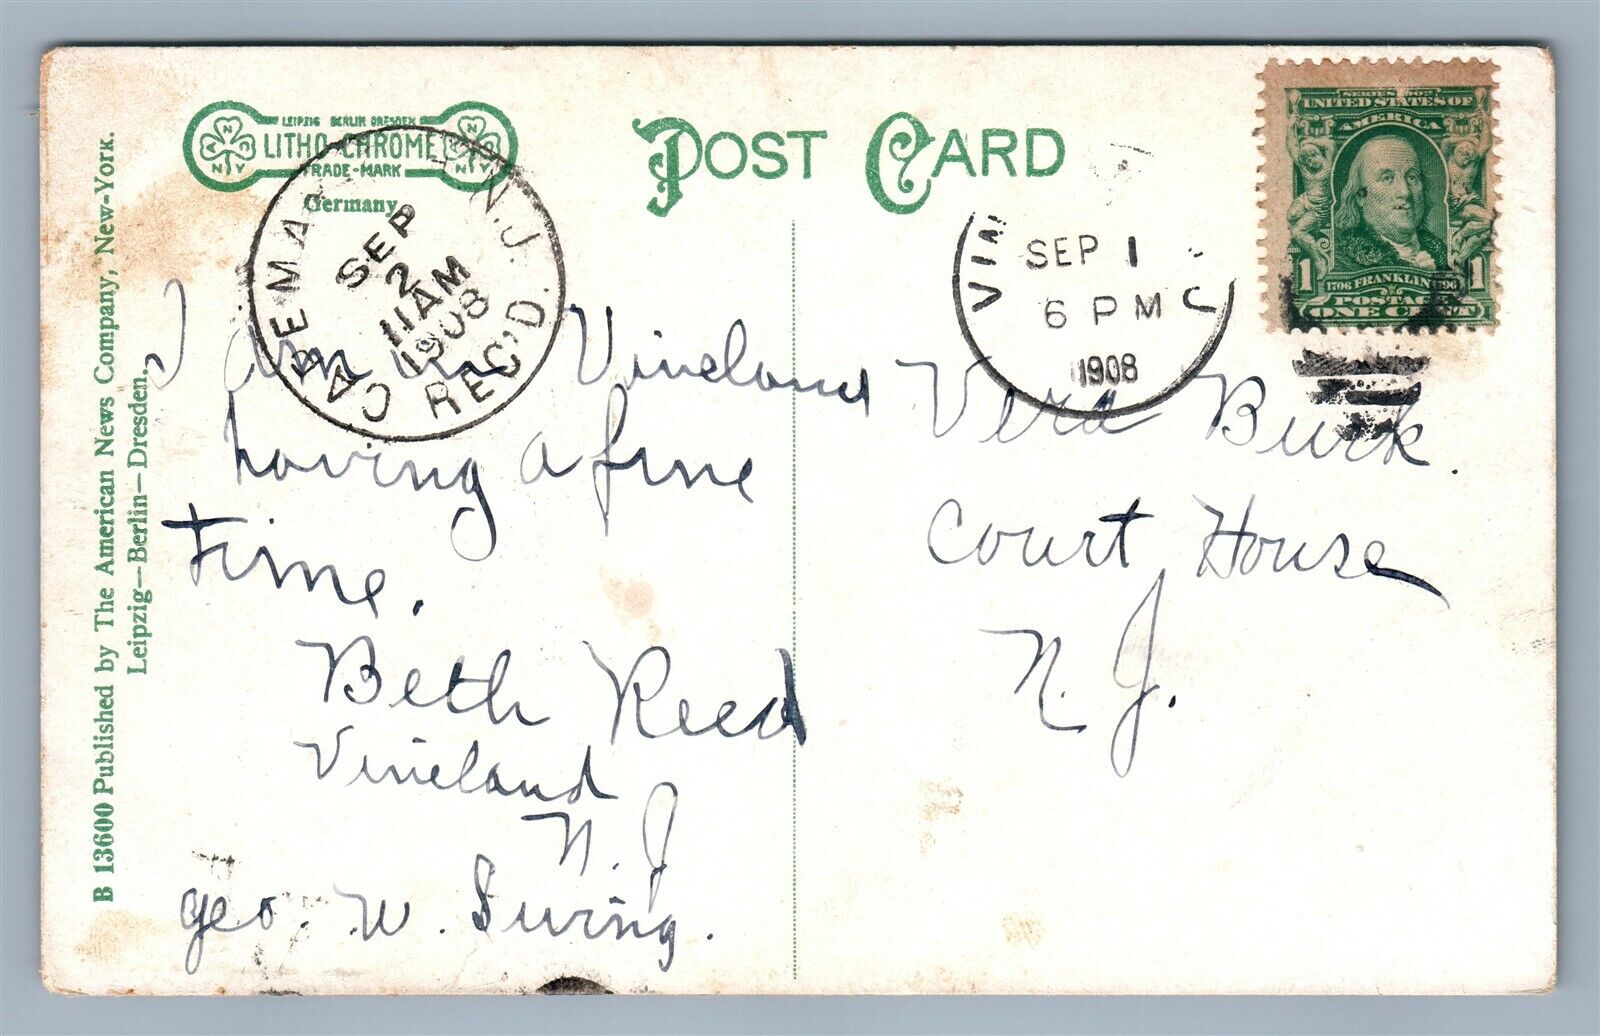 B 13600 Published by The American News Company, New-York.
Leipzig—Berlin—Dresden.
LEIPZIG BERLIN DRESDEN
LITHO-CHROME
TRADE-MARK
N
Y
N
Y
Germany
POST CARD
SERIES 1902
UNITED STATES OF
AMERICA
1 1
1706 FRANKLIN 1790
POSTAGE
ONE CENT
CAPE MAY N.J.
SEP
2
11 AM
1908
REC'D.
VIN J
SEP 1
6 PM
1908
I am in Vineland
having a fine
time.
Beth Reed
Vineland
N. J
Geo. W. Swing.
Vera Burk.
Court House
N. J.